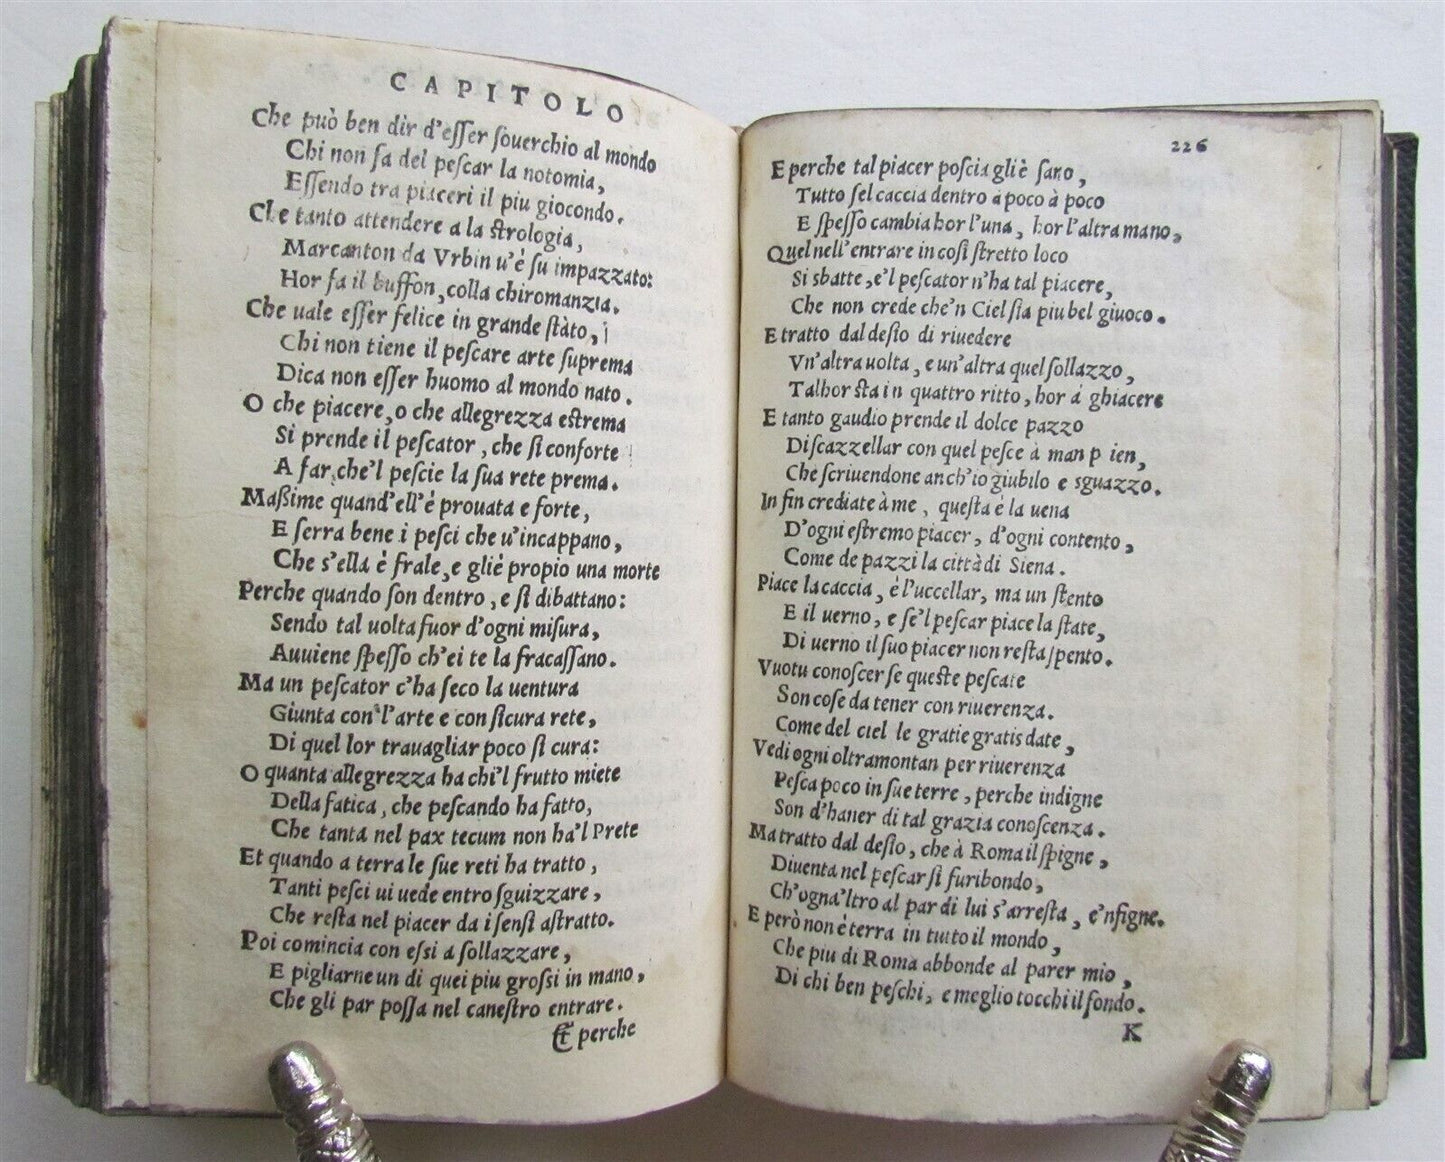 CAPITOLO
Che può ben dir d'eſſer ſouerchio al mondo
Chi non ſa del peſcar la notomia,
Eſſendo tra piaceri il piu giocondo.
Che tanto attendere a la ſtrologia,
Marcanton da Vrbin u'è ſu impazzato:
Hor fa il buffon, colla chiromanzia.
Che uale eſſer felice in grande ſtàto,
Chi non tiene il peſcare arte ſuprema
Dica non eſſer huomo al mondo nato.
O che piacere, o che allegrezza eſtrema
Si prende il peſcator, che ſi conforte
A far, che'l peſcie la ſua rete prema.
Maßime quand'ell'è prouata e forte,
E ſerra bene i peſci che u'incappano,
Che s'ella è frale, e gliè propio una morte
Perche quando ſon dentro, e ſi dibattano:
Sendo tal uolta fuor d'ogni miſura,
Auuiene ſpeſſo ch'ei te la fracaſſano.
Ma un peſcator c'ha ſeco la uentura
Giunta con l'arte e con ſicura rete,
Di quel lor trauagliar poco ſi cura:
O quanta allegrezza ha chi'l frutto miete
Della fatica, che peſcando ha fatto,
Che tanta nel pax tecum non ha'l Prete
Et quando a terra le ſue reti ha tratto,
Tanti peſci ui uede entro ſguizzare,
Che reſta nel piacer da i ſenſi aſtratto.
Poi comincia con eſsi a ſollazzare,
E pigliarne un di quei piu groſsi in mano,
Che gli par poſſa nel caneſtro entrare.
Et perche
226
E perche tal piacer poſcia gliè ſano,
Tutto ſel caccia dentro à poco à poco
E ſpeſſo cambia hor l'una, hor l'altra mano,
Quel nell'entrare in coſi ſtretto loco
Si sbatte, e'l peſcator n'ha tal piacere,
Che non crede che'n Ciel ſia piu bel giuoco.
E tratto dal deſio di riuedere
Vn'altra uolta, e un'altra quel ſollazzo,
Talhor ſta in quattro ritto, hor á ghiacere
E tanto gaudio prende il dolce pazzo
Di ſcazzellar con quel peſce à man p ien,
Che ſcriuendone anch'io giubilo e sguazzo.
In fin crediate à me, queſta é la uena
D'ogni eſtremo piacer, d'ogni contento,
Come de pazzi la città di Siena.
Piace la caccia, é l'uccellar, ma un ſtento
E il uerno, e ſe'l peſcar piace la ſtate,
Di uerno il ſuo piacer non reſta ſpento.
Vuotu conoſcer ſe queſte peſcate
Son coſe da tener con riuerenza.
Come del ciel le gratie gratis date,
Vedi ogni oltramontan per riuerenza
Peſca poco in ſue terre, perche indigne
Son d'hauer di tal grazia conoſcenza.
Ma tratto dal deſio, che à Roma il ſpigne,
Diuenta nel peſcar ſi furibondo,
Ch'ogna'ltro al par di lui s'arreſta, e'nfigne.
E però non è terra in tutto il mondo,
Che piu di Roma abbonde al parer mio,
Di chi ben peſchi, e meglio tocchi il fondo.
K